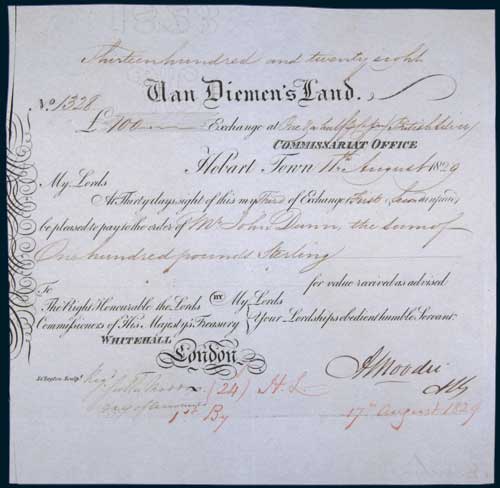 Thirteen hundred and twenty eight
Van Diemen's Land.
No. 1328
£100 Exchange at One & a half British Silver
COMMISSARIAT OFFICE
Hobart Town 17th August 1829
My Lords
At Thirty days sight of this my Third of Exchange (First & Second unpaid)
be pleased to pay to the order of Mr John Dunn, the sum of
One hundred pounds Sterling
for value received as advised
To
The Right Honourable the Lords BY My Lords
Commissioners of His Majesty's Treasury Your Lordships obedient humble Servant
WHITEHALL
London
(24) H.L
A Moodie
1st By 17th August 1829